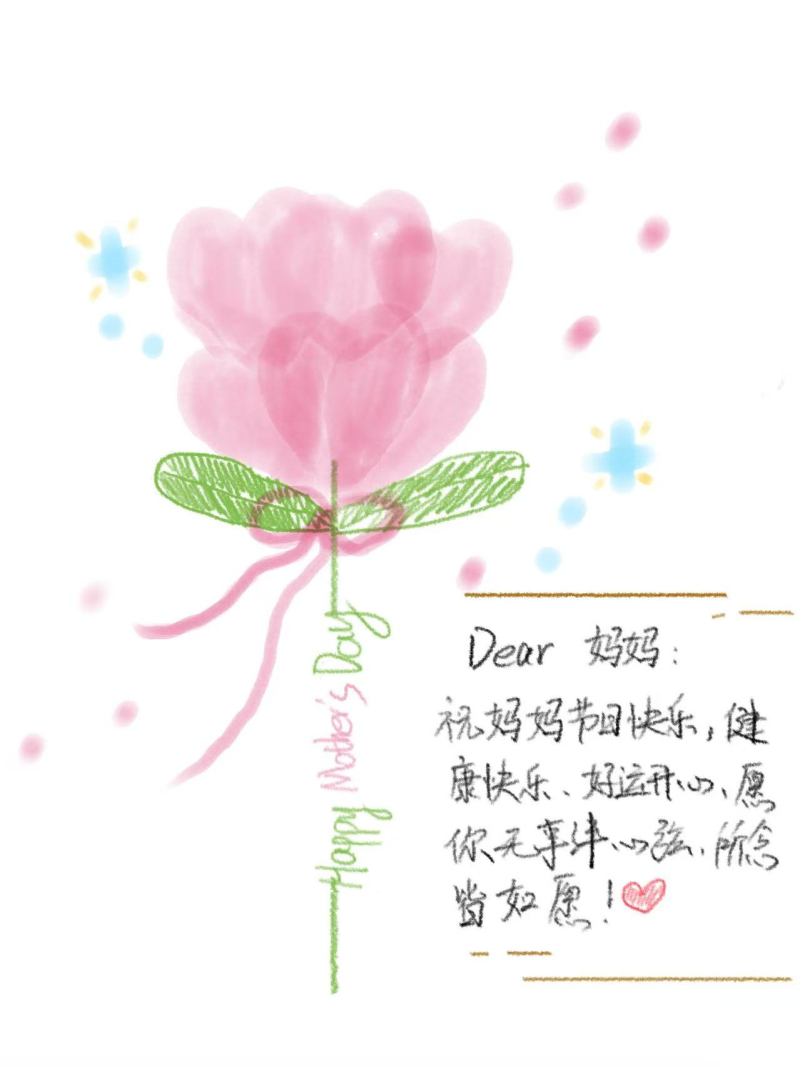 Happy Mother's Day
Dear 妈妈:
祝妈妈节日快乐,健
康快乐、好运开心、愿
你无事绊心弦、所念
皆如愿!